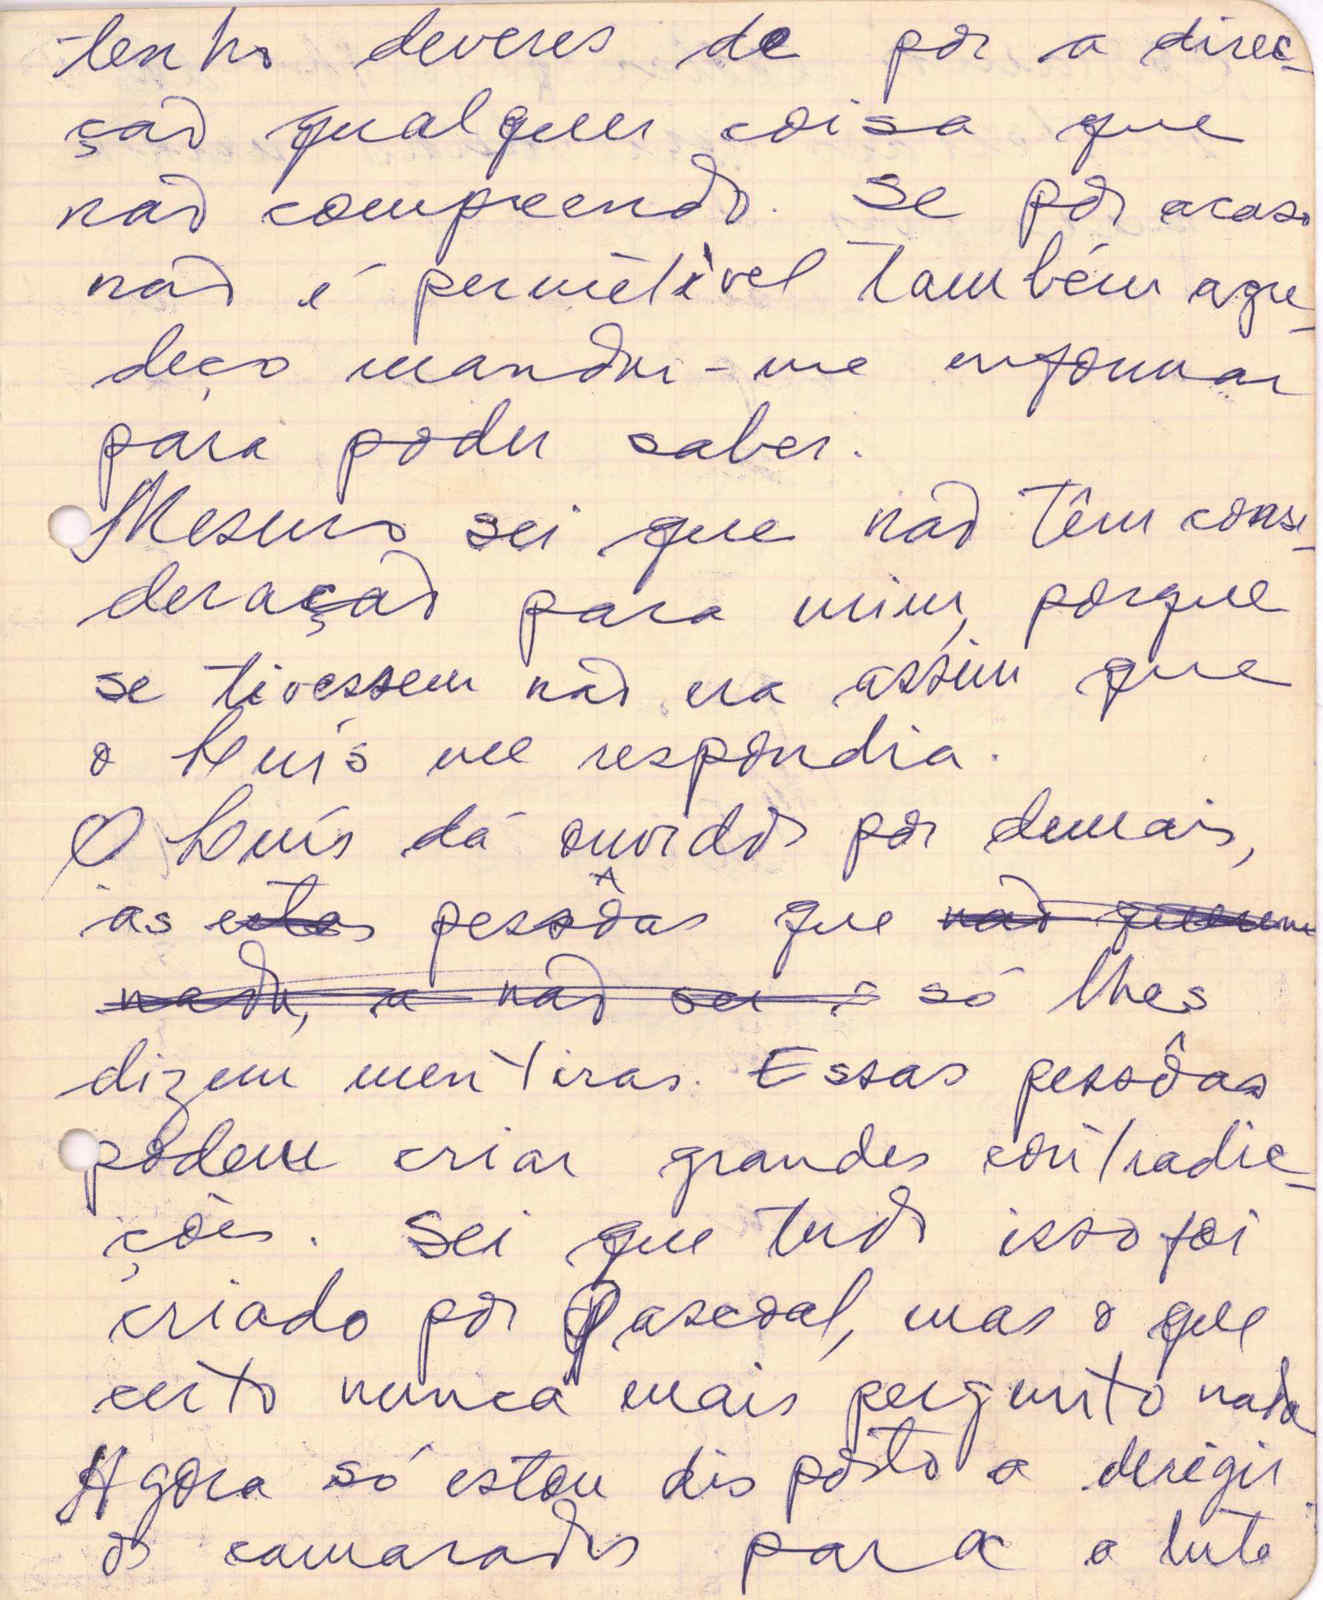 tenho deveres de por a direc-
ção qualquer coisa que
não compreendo. Se por acaso
não é permitível também agra-
deço mandar-me informar
para poder saber.
Mesmo sei que não têm consi-
deração para mim, porque
se tivessem não era assim que
o Luís me respondia.
O Luís dá ouvidos por demais,
às estas pessôas que não querem
nada, e não ser só lhes
dizem mentiras. Essas pessôas
podem criar grandes contradic-
ções. Sei que tudo isso foi
criado por Pascoal, mas o que
certo nunca mais pergunto nada
Agora só estou disposto a derigir
os camaradas para a luta